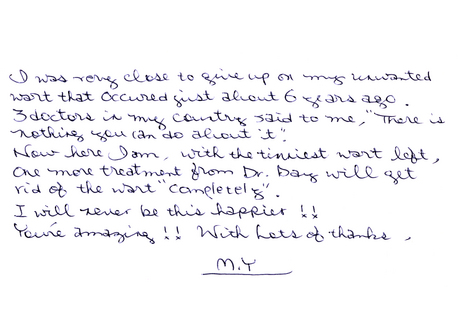 I was very close to give up on my unwanted
wart that occured just about 6 years ago.
3 doctors in my country said to me, "There is
nothing you can do about it".
Now here I am, with the tiniest wart left,
One more treatment from Dr. Day will get
rid of the wart "completely".
I will never be this happier !!
You're amazing !! With Lots of thanks,
M.Y